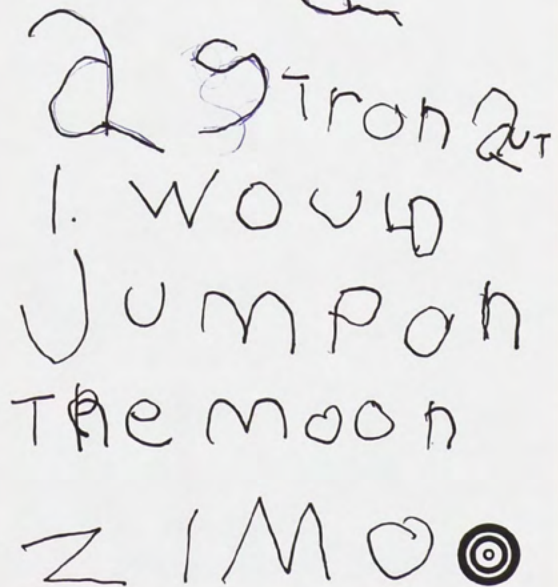 astronaut
I. WOULD
Jumpon
The moon
ZIMO